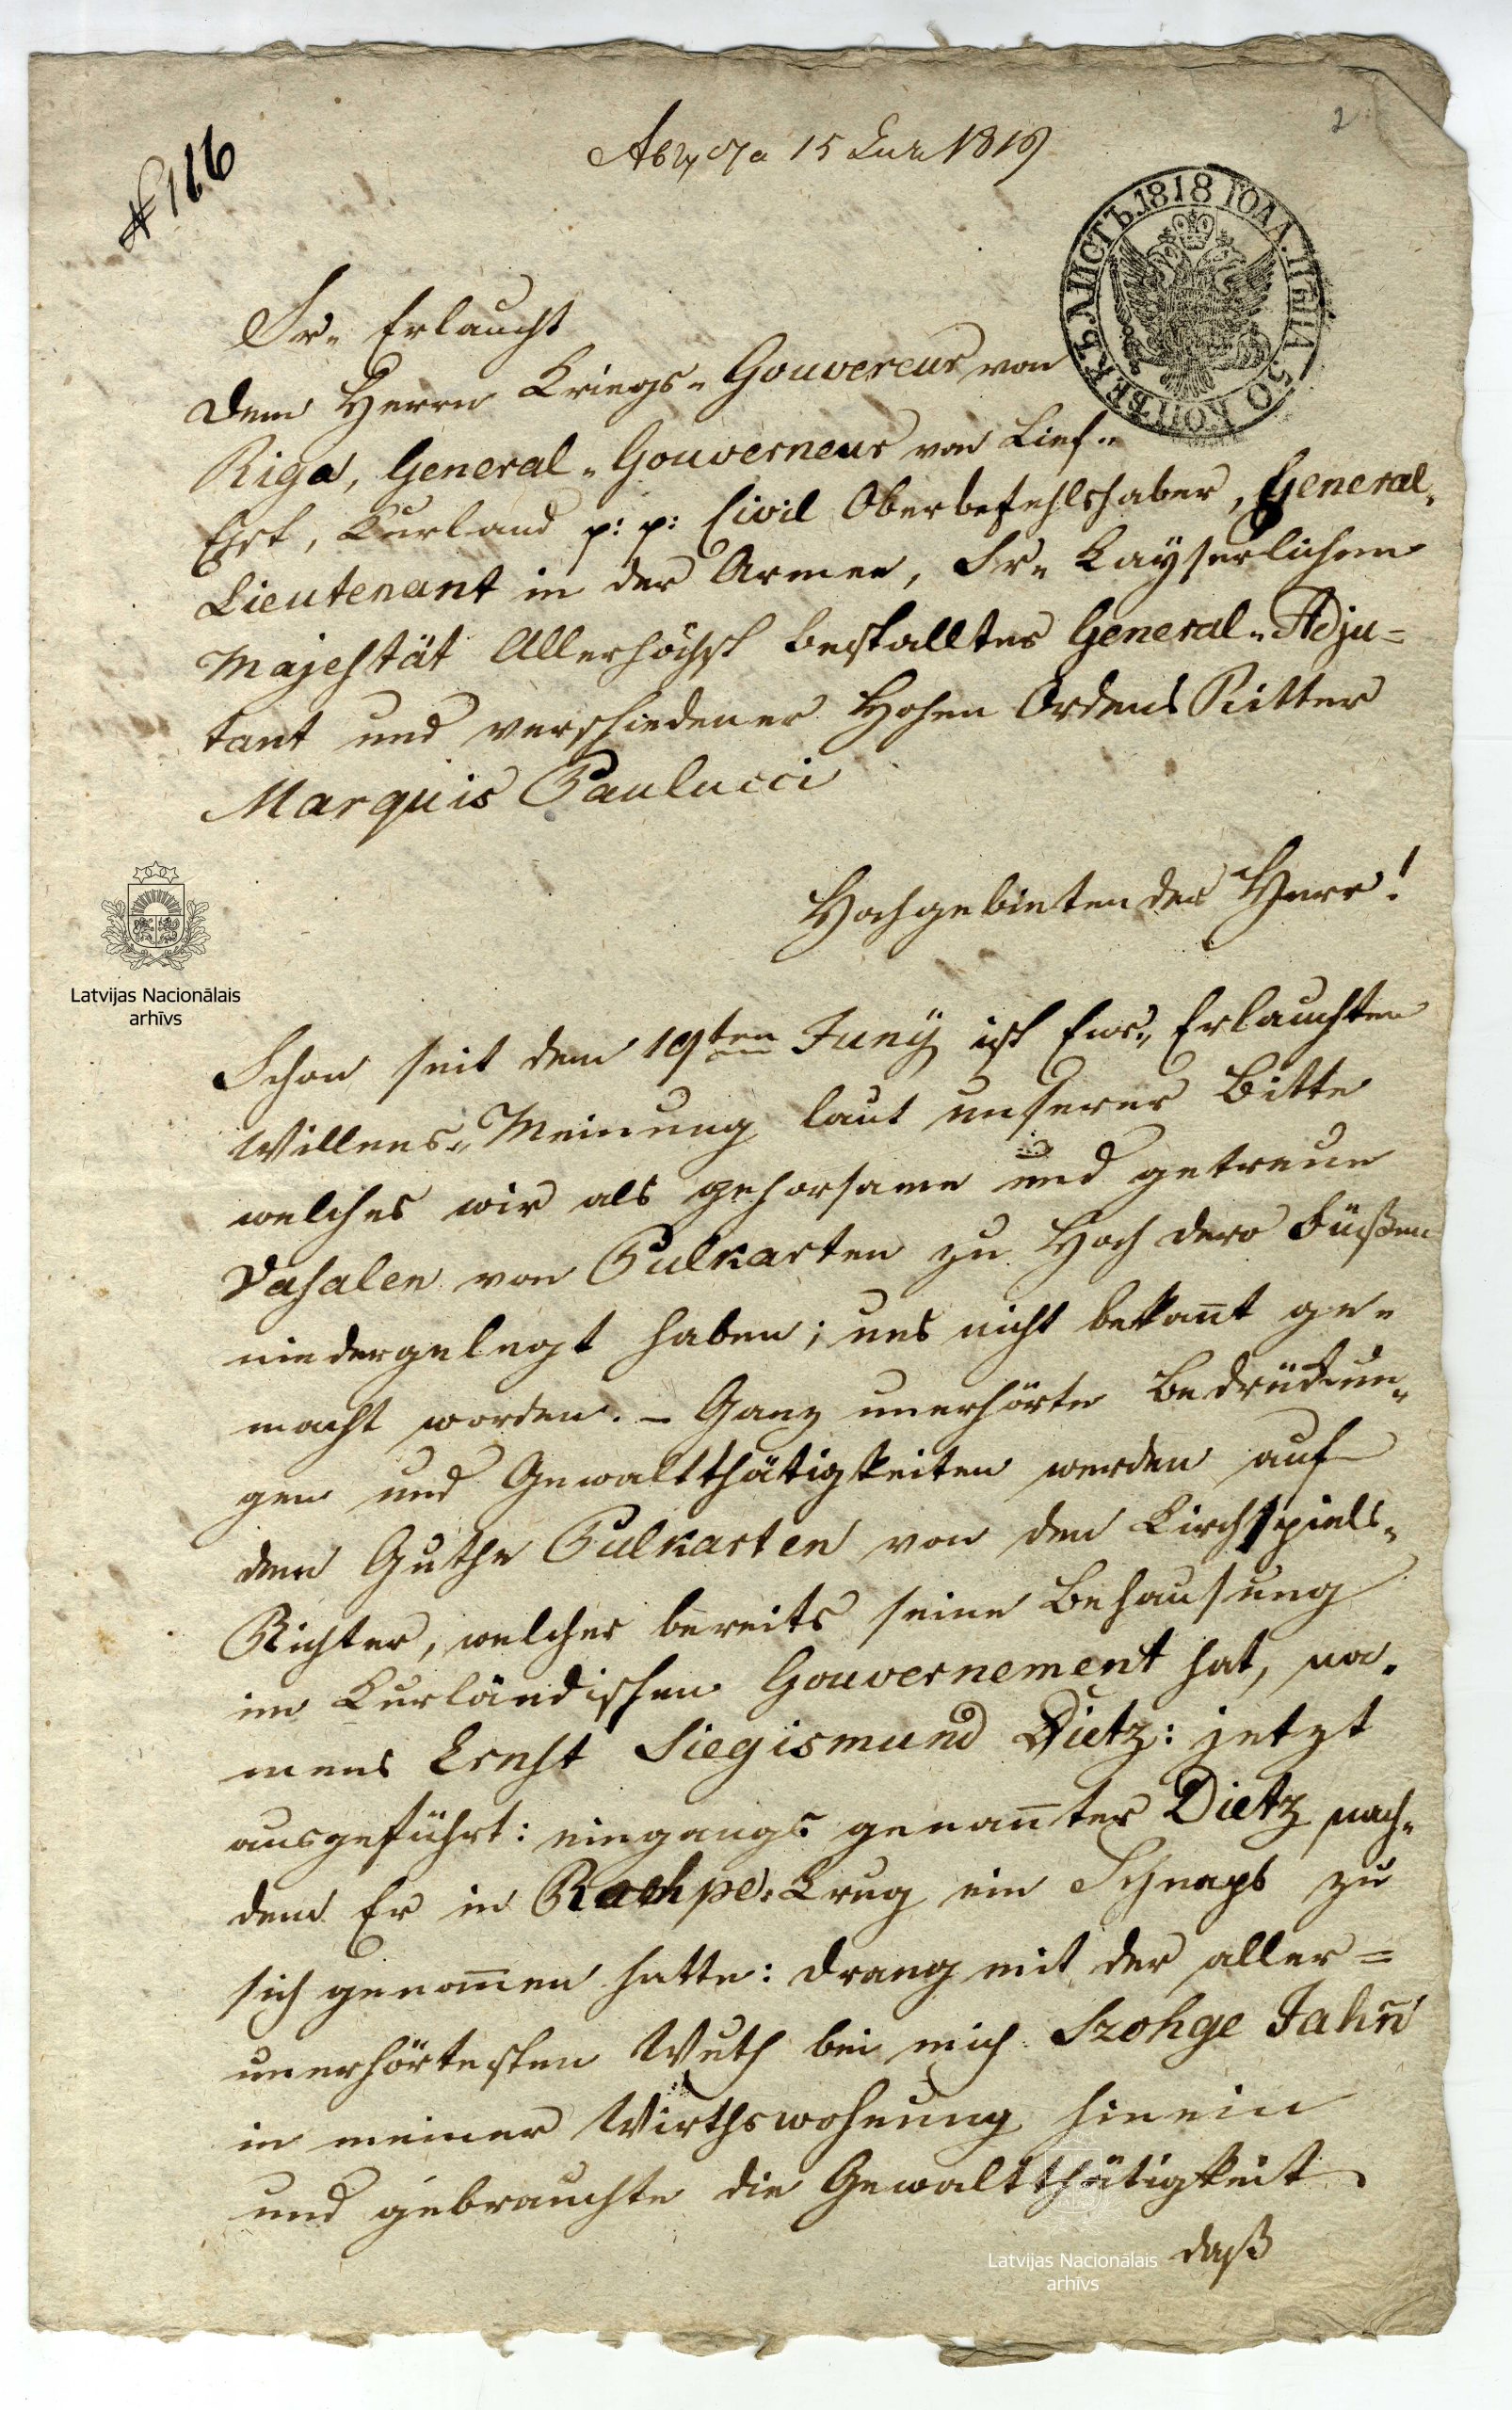 № 116
2
Августа 15 дня 1819
ЛИСТЪ. 1818 ГОДА. ЦѢНА 50 КОПѢЕКЪ.
Sr. Erlaucht
dem Herrn Kriegs-Gouvereur von
Riga, General-Gouverneur von Lief-
Ehst, Curland p: p: Civil Oberbefehlshaber, General-
Lieutenant in der Armee, Sr. Kayserlichen
Majestät Allerhöchst bestallter General-Adju-
tant und verschiedener Hohen Ordens Ritter
Marquis Paulucci
Hochgebietender Herr!
Schon seit dem 19ten Juny ist Eur. Erlauchten
Willens-Meinung laut unserer Bitte
welches wir als gehorsame und getreue
Vasalen von Pulkarten zu Hoch dero Füßen
niedergelegt haben; uns nicht bekan̄t ge-
macht worden. – Ganz unerhörte Bedrückun-
gen und Gewaltthätigkeiten werden auf
dem Guthe Pulkarten von den Kirchspiels-
Richter, welcher bereits seine Behausung
im Curländischen Gouvernement hat, na-
mens Ernst Siegismund Dietz: jetzt
ausgeführt: eingangs genan̄ter Dietz nach-
dem Er in Krug ein Schnaps zu
sich genom̄en hatte: drang mit der aller=
unerhörtesten Wuth bei mich Szohge Jahn̄
in meiner Wirthswohnung hinein
und gebrauchte die Gewaltthätigkeit
daß
Latvijas Nacionālais
arhīvs
Latvijas Nacionālais
arhīvs